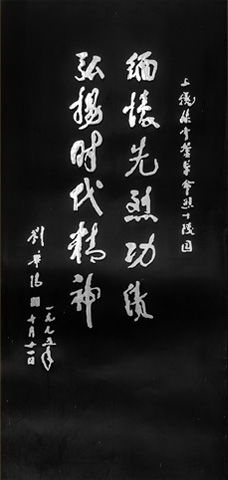 上饶集中营革命烈士陵园
缅懷先烈功绩
弘揚时代精神
劉華清
一九九五年
十月廿一日